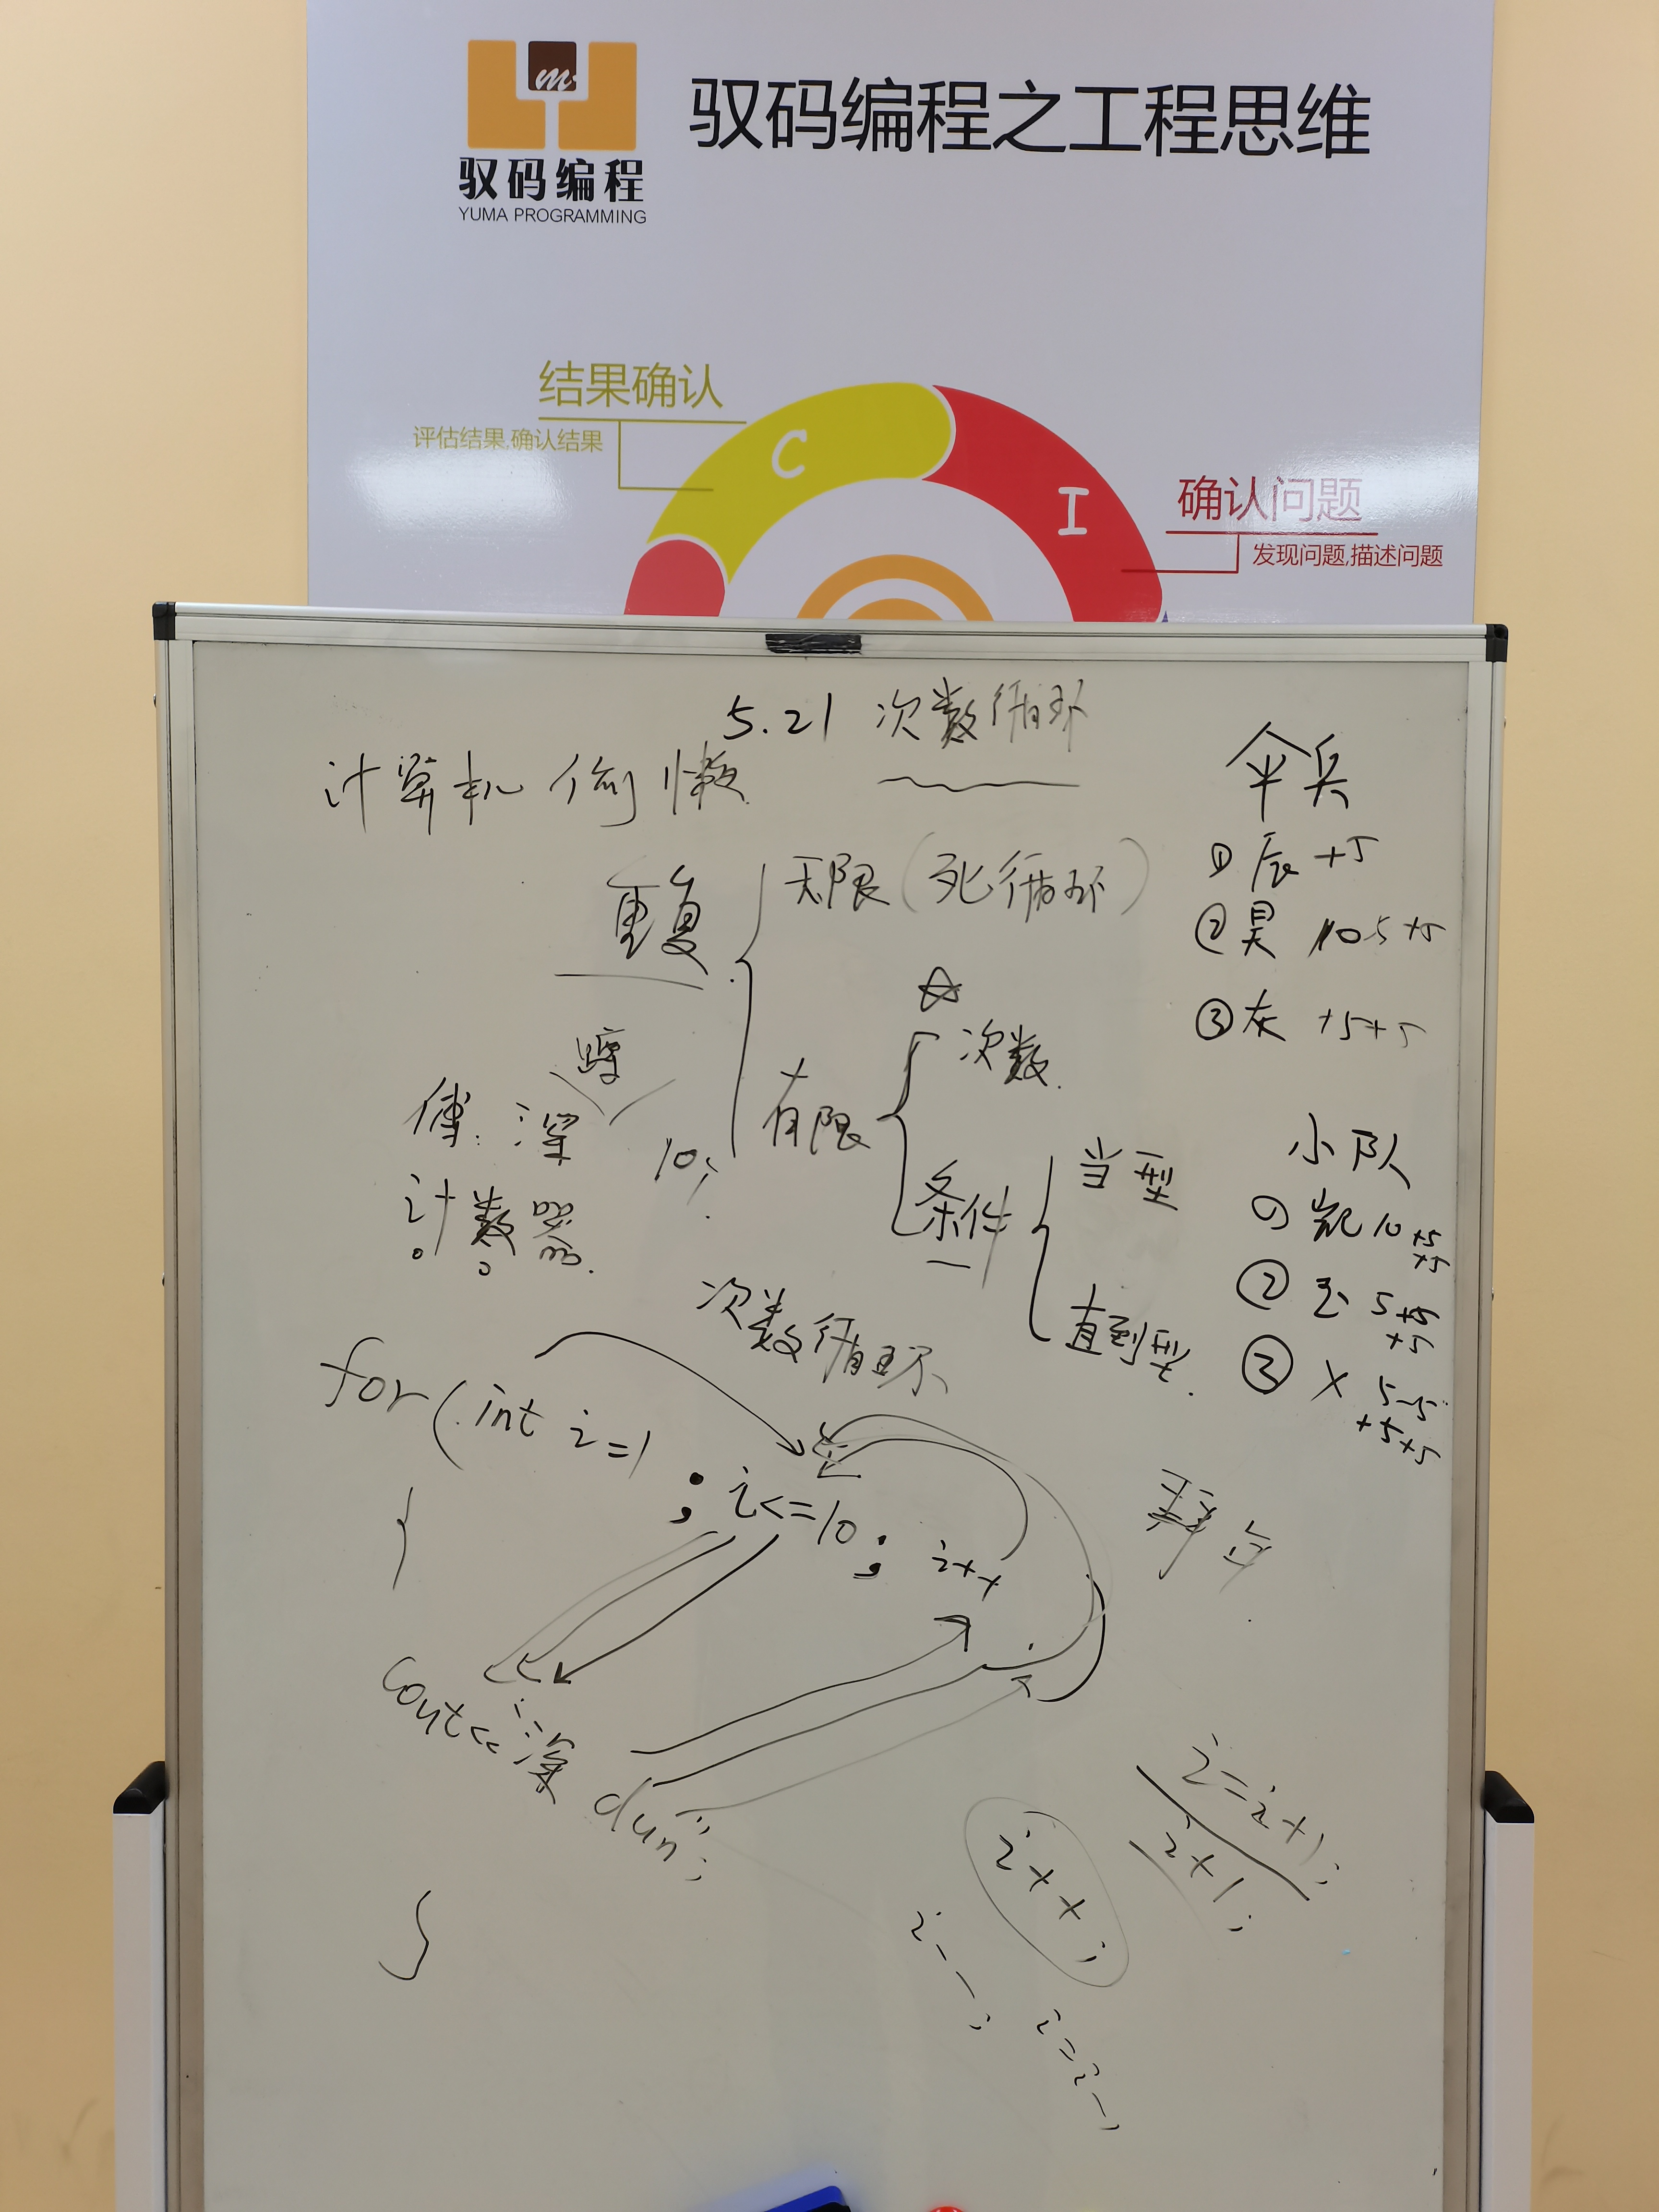 m
驭码编程
YUMA PROGRAMMING
驭码编程之工程思维
结果确认
评估结果,确认结果
C
I
确认问题
发现问题,描述问题
5.21 次数循环
计算机偷懒
重复
无限(死循环)
有限
次数
条件
当型
直到型
伞兵
① 辰 +5
② 昊 10 5 +5
③ 灰 +5+5
小队
① 凯 10 +5 +5
② 玉 5 +5 +5
③ X 5 -5 +5+5
蹲
傅: 深
10;
计数器
次数循环
for(int i=1 ; i<=10 ; i++
{
cout<<"深 dun";
}
i=i+1;
i+1;
i++;
i--;
i=i-1